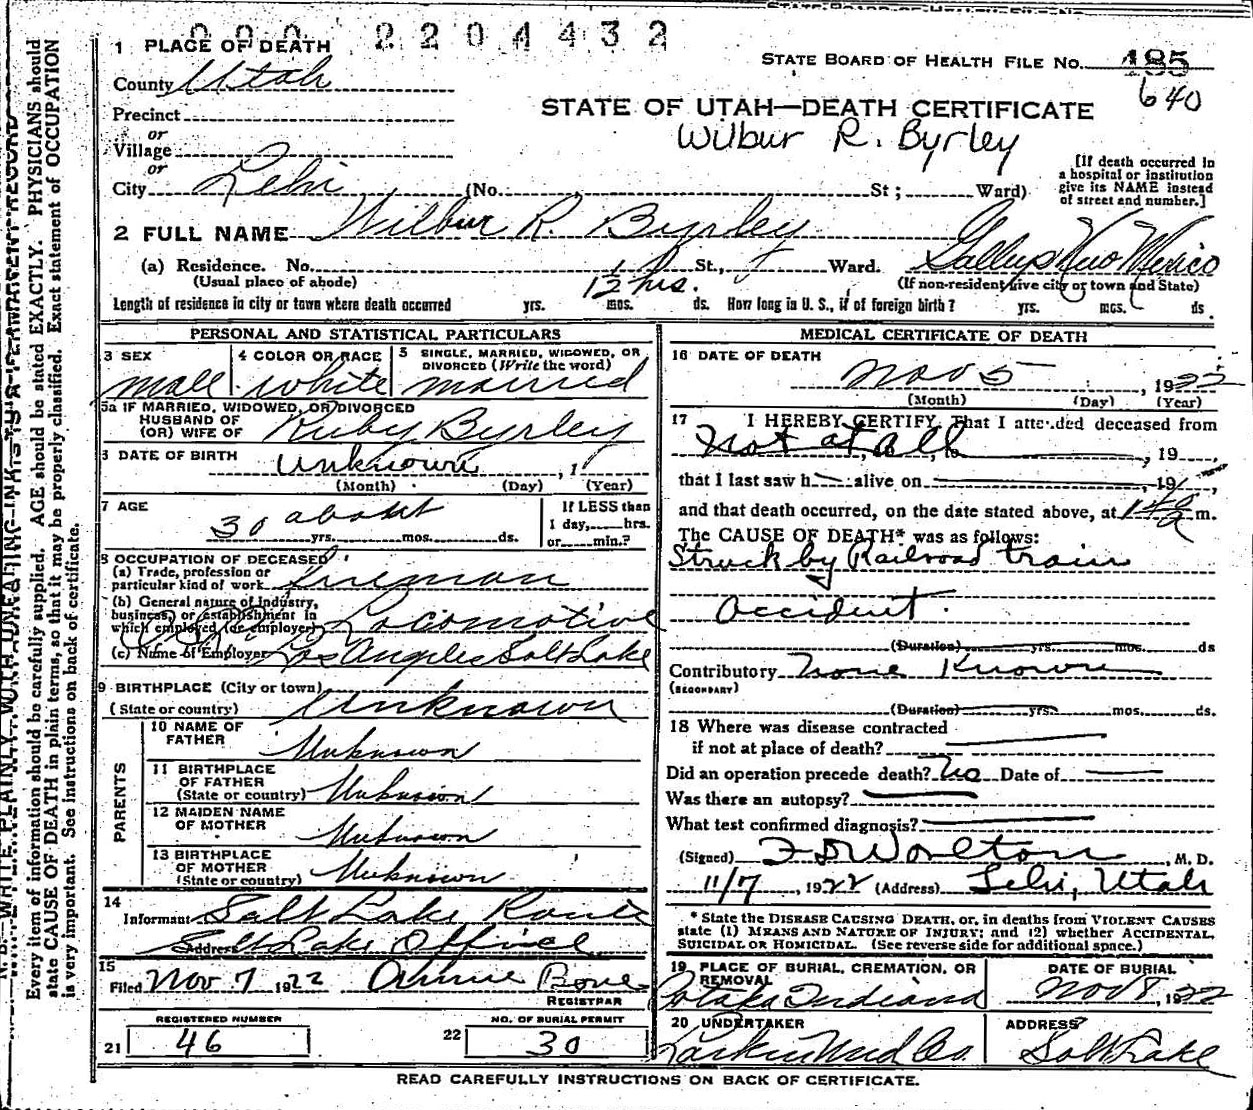 2204432
STATE BOARD OF HEALTH FILE No. 485
640
1 PLACE OF DEATH
County Utah
STATE OF UTAH—DEATH CERTIFICATE
Precinct
or
Village
or
Wilbur R. Byrley
City Lehi (No. St; Ward)
[If death occurred in
a hospital or institution
give its NAME instead
of street and number.]
2 FULL NAME Wilbur R. Byrley
(a) Residence. No. St., Ward. Mexico
(Usual place of abode)
(If non-resident give city or town and State)
12 hrs.
Length of residence in city or town where death occurred yrs. mos. ds. How long in U. S., if of foreign birth? yrs. mos. ds.
PERSONAL AND STATISTICAL PARTICULARS
3 SEX
male
4 COLOR OR RACE
white
5 SINGLE, MARRIED, WIDOWED, OR
DIVORCED (Write the word)
married
5a IF MARRIED, WIDOWED, OR DIVORCED
HUSBAND OF
(OR) WIFE OF Ruby Byrley
6 DATE OF BIRTH unknown, 1
(Month) (Day) (Year)
7 AGE
about
30 yrs. mos. ds.
If LESS than
1 day, hrs.
or min.?
8 OCCUPATION OF DECEASED
(a) Trade, profession or
particular kind of work Fireman
(b) General nature of industry,
business, or establishment in
which employed (or employer) Locomotive
(c) Name of Employer Los Angeles Salt Lake
9 BIRTHPLACE (City or town)
(State or country) Unknown
PARENTS
10 NAME OF
FATHER Unknown
11 BIRTHPLACE
OF FATHER
(State or country) Unknown
12 MAIDEN NAME
OF MOTHER Unknown
13 BIRTHPLACE
OF MOTHER
(State or country) Unknown
14
Informant Salt Lake Route
Address Salt Lake Office
15
Filed Nov 7 1922 Annie Bone
REGISTRAR
REGISTERED NUMBER
21 46
NO. OF BURIAL PERMIT
22 30
MEDICAL CERTIFICATE OF DEATH
16 DATE OF DEATH
Nov 5, 1922
(Month) (Day) (Year)
17 I HEREBY CERTIFY, That I attended deceased from
not at all, 19
that I last saw h alive on , 19
and that death occurred, on the date stated above, at a m.
The CAUSE OF DEATH* was as follows:
Struck by Railroad train
accident.
(Duration) yrs. mos. ds
Contributory None Known
(SECONDARY)
(Duration) yrs. mos. ds.
18 Where was disease contracted
if not at place of death?
Did an operation precede death? No Date of
Was there an autopsy?
What test confirmed diagnosis?
(Signed) F D Worlton, M. D.
11/7, 1922 (Address) Lehi, Utah
* State the DISEASE CAUSING DEATH, or, in deaths from VIOLENT CAUSES
state (1) MEANS AND NATURE OF INJURY; and (2) whether ACCIDENTAL,
SUICIDAL OR HOMICIDAL. (See reverse side for additional space.)
19 PLACE OF BURIAL, CREMATION, OR
REMOVAL
Indiana
DATE OF BURIAL
Nov 8, 1922
20 UNDERTAKER
Larkin Und Co.
ADDRESS
Salt Lake
READ CAREFULLY INSTRUCTIONS ON BACK OF CERTIFICATE.
N. B.—WRITE PLAINLY WITH UNFADING INK—THIS IS A PERMANENT RECORD
Every item of information should be carefully supplied. AGE should be stated EXACTLY. PHYSICIANS should
state CAUSE OF DEATH in plain terms, so that it may be properly classified. Exact statement of OCCUPATION
is very important. See instructions on back of certificate.